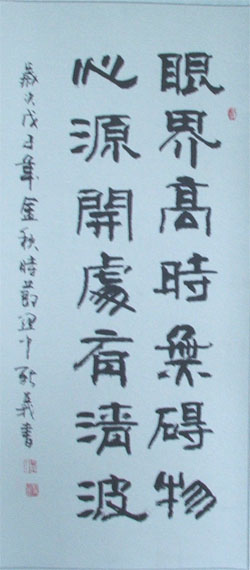 眼界高時無碍物
心源開處有清波
歲次戊子年金秋時節建中耿義書